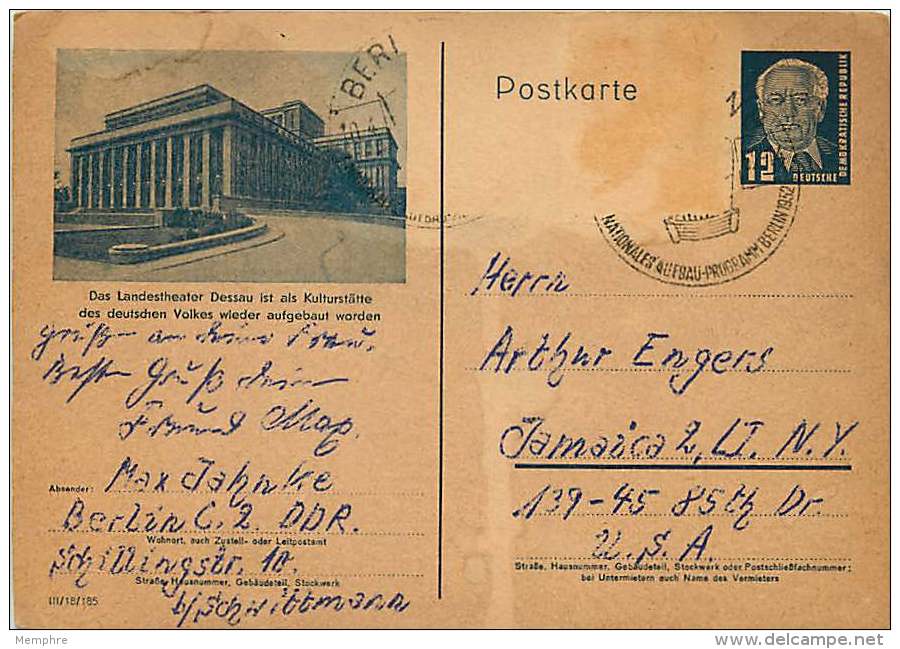 Postkarte
12
DEUTSCHE
DEMOKRATISCHE REPUBLIK
BERL
NATIONALES AUFBAU-PROGRAMM BERLIN 1952
Das Landestheater Dessau ist als Kulturstätte
des deutschen Volkes wieder aufgebaut worden
Grüße an deine Frau.
Besten Gruß dein
Freund Max.
Absender: Max Jahnke
Berlin C. 2. DDR.
Wohnort, auch Zustell- oder Leitpostamt
Schillingstr. 10.
Straße, Hausnummer, Gebäudeteil, Stockwerk
b/Schwittmann
III/18/185
Herrn
Arthur Engers
Jamaica 2, LI. N.Y.
139-45 85th Dr.
U.S.A.
Straße, Hausnummer, Gebäudeteil, Stockwerk oder Postschließfachnummer;
bei Untermietern auch Name des Vermieters
Memphre
delcampe.net